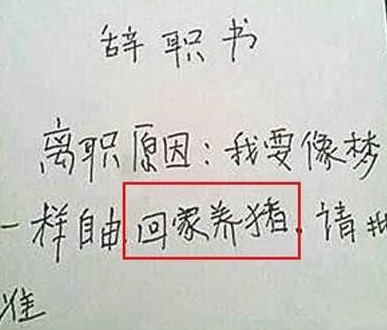 辞职书
离职原因:我要像梦
一样自由.回家养猪.请批
准